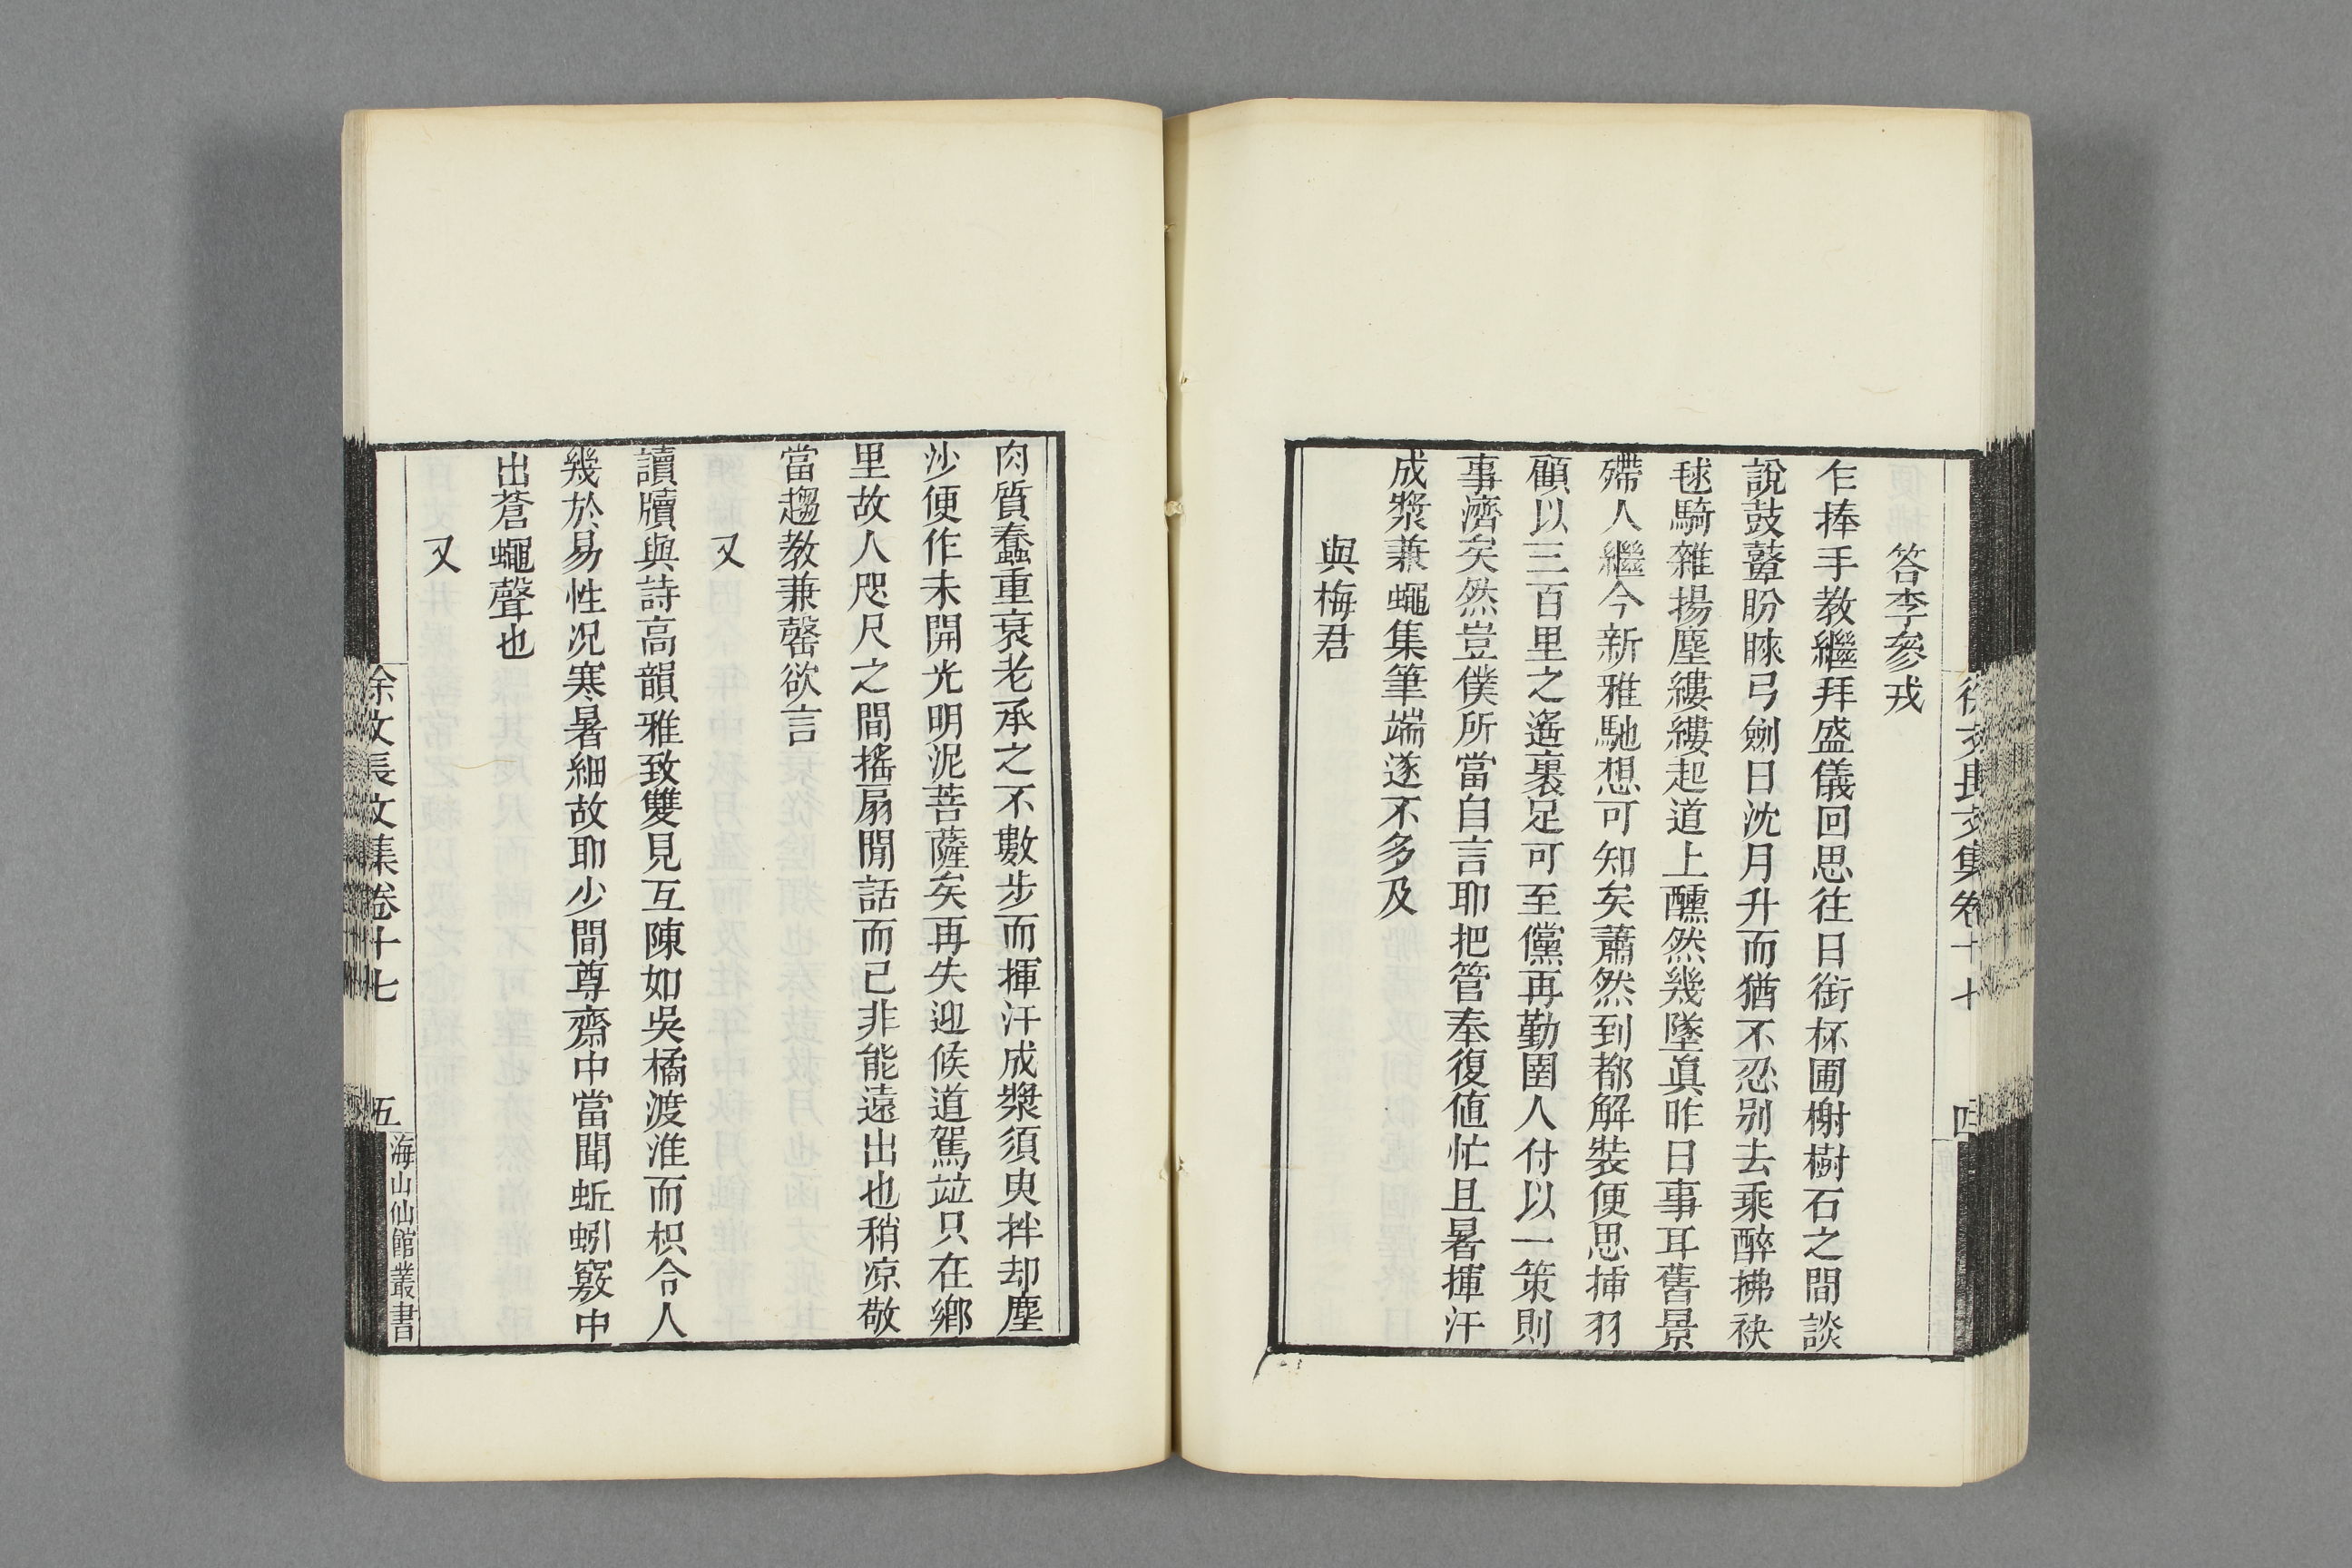 徐文長文集卷十七 四
答李參戎
乍捧手教繼拜盛儀回思往日銜杯圃榭樹石之間談
說鼓鼙盼睞弓劍日沈月升而猶不忍别去乘醉拂袂
毬騎雜揚塵縷縷起道上醺然幾墜眞昨日事耳舊景
殢人繼今新雅馳想可知矣蕭然到都解裝便思揷羽
顧以三百里之遙裹足可至儻再勤圉人付以一策則
事濟矣然豈僕所當自言耶把管奉復値忙且暑揮汗
成漿兼蠅集筆端遂不多及
與梅君
肉質蠢重衰老承之不數步而揮汗成漿須臾拌却塵
沙便作未開光明泥菩薩矣再失迎候道駕竝只在鄉
里故人咫尺之間搖扇閒話而已非能遠出也稍凉敬
當趨教兼罄欲言
又
讀牘與詩高韻雅致雙見互陳如吳橘渡淮而枳令人
幾於易性况寒暑細故耶少間尊齋中當聞蚯蚓竅中
出蒼蠅聲也
又
徐文長文集卷十七 五
海山仙館叢書